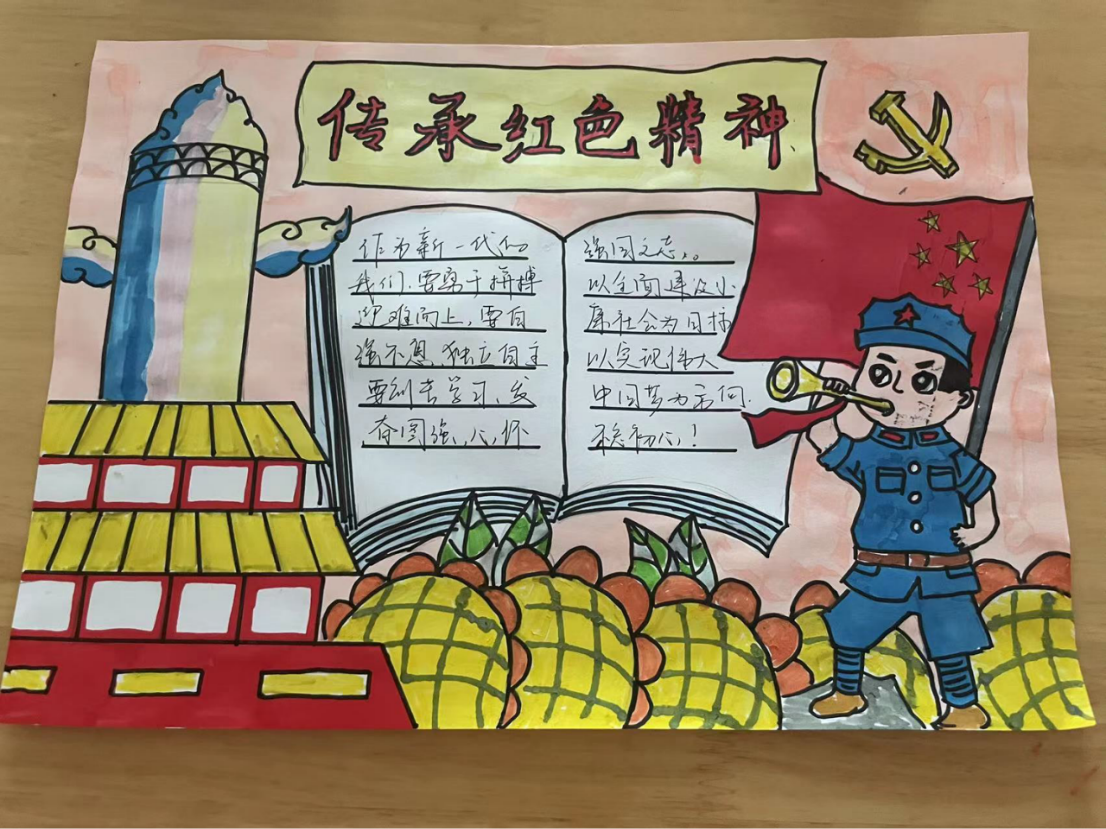 传承红色精神
作为新一代的
我们,要勇于拼搏
迎难而上,要自
强不息,独立自主
要刻苦学习、发
奋图强,心怀
强国之志,。
以全面建设小
康社会为目标
以实现伟大
中国梦为方向.
不忘初心,!